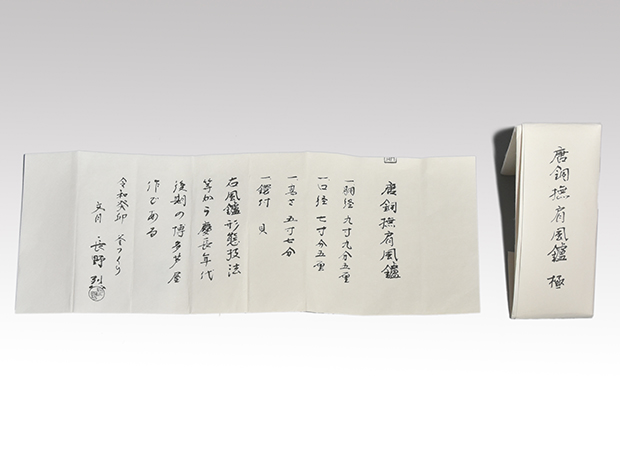 唐銅撫肩風鑪
一胴径 九寸九分五厘
一口径 七寸分五厘
一高さ 五寸七分
一鐶付 貝
右風鑪形態技法
等から慶長年代
後期の博多芦屋
作である
令和癸卯 釜つくり
文月 長野 烈
唐銅撫肩風鑪 極